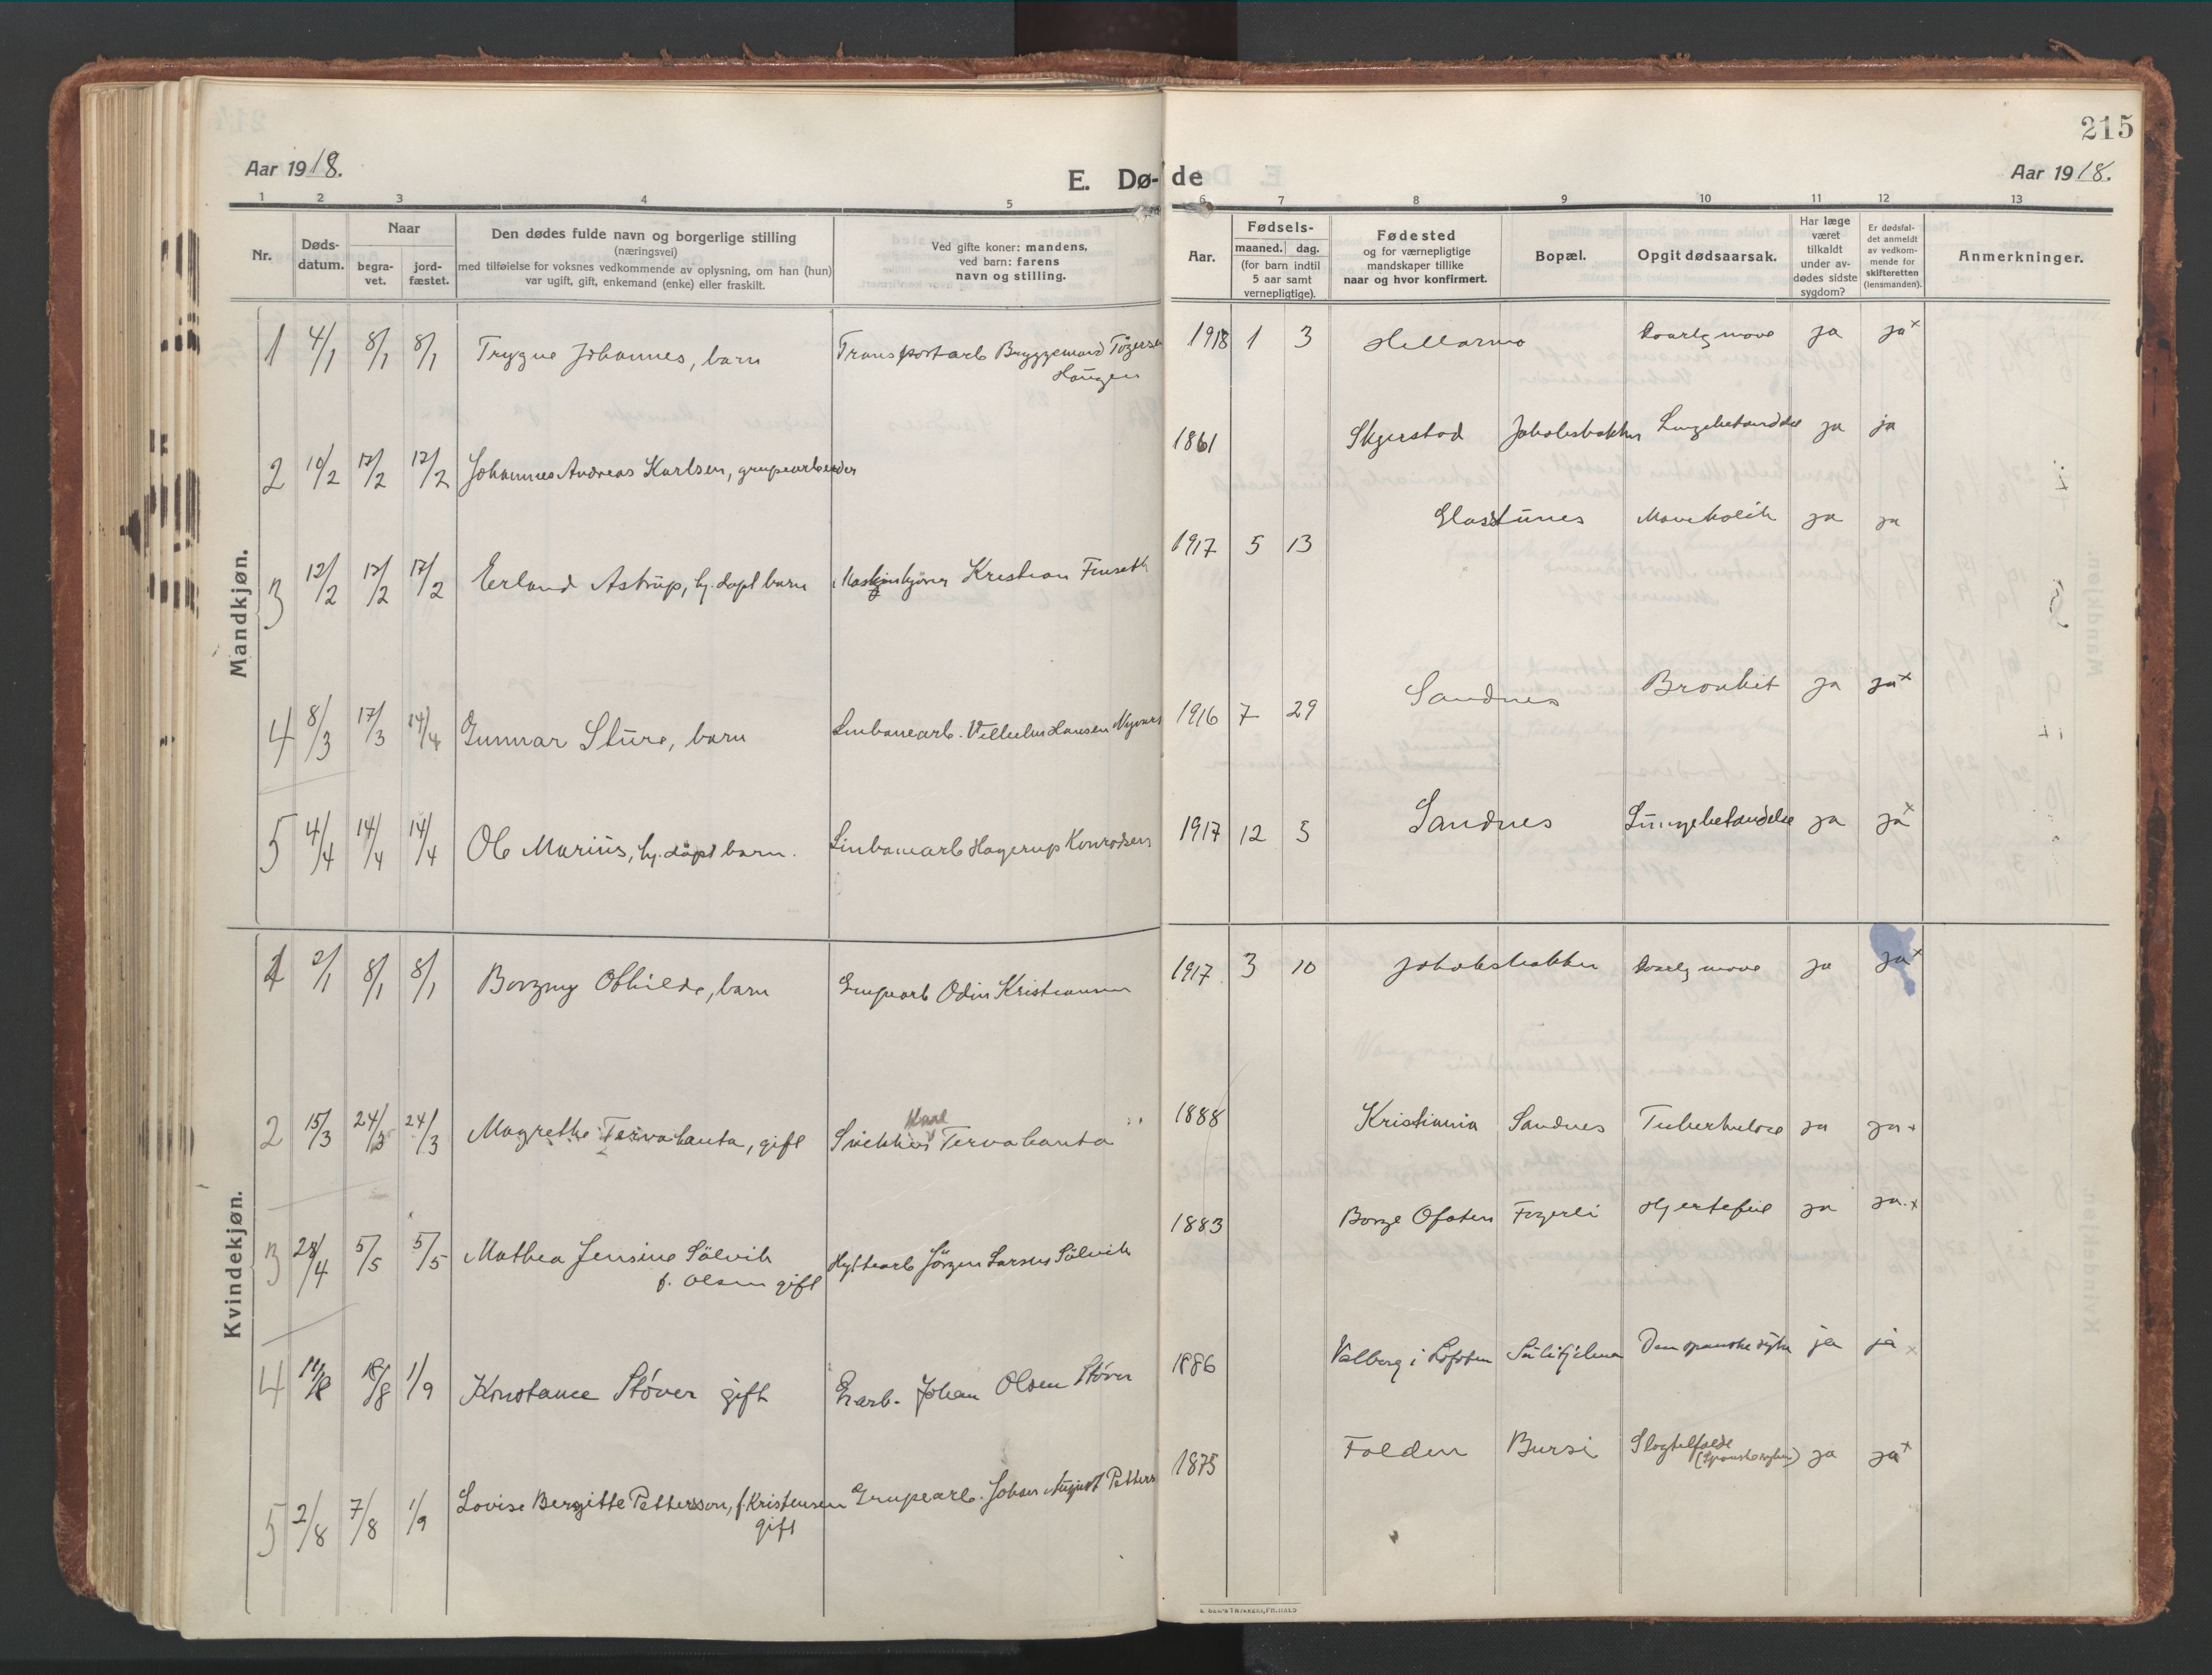 215
Aar 1918.
E. Dø-
de
Aar 1918.
1 2 3 4 5 6 7 8 9 10 11 12 13
Nr.
Døds-
datum.
Naar
begra-
vet.
jord-
fæstet.
Den dødes fulde navn og borgerlige stilling
(næringsvei)
med tilføielse for voksnes vedkommende av oplysning, om han (hun)
var ugift, gift, enkemand (enke) eller fraskilt.
Ved gifte koner: mandens,
ved barn: farens
navn og stilling.
Aar.
Fødsels-
maaned. dag.
(for barn indtil
5 aar samt
vernepligtige).
Fødested
og for værnepligtige
mandskaper tillike
naar og hvor konfirmert.
Bopæl.
Opgit dødsaarsak.
Har læge
været
tilkaldt
under av-
dødes sidste
sygdom?
Er dødsfal-
det anmeldt
av vedkom-
mende for
skifteretten
(lensmanden).
Anmerkninger.
Mandkjøn.
1 4/1 8/1 8/1 Trygve Johannes, barn Transportarb Bryggemand 1918 1 3 Hellarmo ja ja x
Haugen
2 10/2 17/2 17/2 Johannes Andreas Karlsen, grupearbeider 1861 Skjerstad Jakobsbakken Lungebetændelse ja ja
3 12/2 17/2 17/2 Erland Astrup, hj. døpt barn Maskinkjører Kristian Furseth 1917 5 13 Glastunes Mavekolik ja ja
4 8/3 17/3 14/4 Gunnar Sture, barn Linbanearb. Vilhelm Hansen 1916 7 29 Sandnes Bronkit ja ja x
5 4/4 14/4 14/4 Ole Marius, hj. døpt barn. Linbanearb Hagerup Konradsen 1917 12 5 Sandnes Lungebetændelse ja ja x
Kvindekjøn.
1 2/1 8/1 8/1 Borgny Othilde, barn Grupearb Odin Kristiansen 1917 3 10 Jakobsbakken ja ja x
2 15/3 24/3 24/3 Magrethe Tervahauta, gift Snekker Tervahauta 1888 Kristiania Sandnes Tuberkulose ja ja x
3 28/4 5/5 5/5 Mathea Jensine Sölvik Hyttearb Jörgen Larsen Sölvik 1883 Borge Ofoten Fagerli Hjertefeil ja ja. x
f. Olsen gift
4 18/8 1/9 Konstance Støver gift Johan Olsen Støver 1886 Valberg i Lofoten Sulitjelma Den spanske syke ja ja x
5 2/8 7/8 1/9 Lovise Bergitte Pettersson, f. Kristensen Grupearb. Johan August Petters 1875 Folden Bursi Slagtilfælde ja ja x
gift